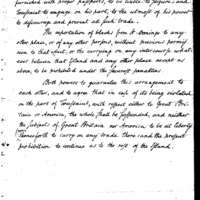 furnished with proper passports, to be liable to seizure; and
Toussaint to engage on his part, to the utmost of his power
to discourage and prevent all such trade.
The exportation of blacks from St. Domingo to any
other place, or of any other person, without previous permis-
sion to that effect, or the carrying on any intercourse what-
ever between that Island and any other place except as
above, to be prohibited under the severest penalties.
Both powers to guarantee this arrangement to
each other, and to agree that in case of its being violated
on the part of Toussaint, with respect either to Great Bri-
tain or America, the whole shall be suspended, and neither
the subjects of Great Britain nor America to be at liberty
thenceforth to carry on any trade there: and the present
prohibition to continue as to the rest of the Island.